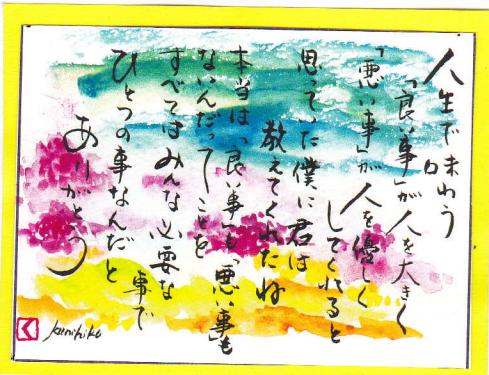 人生で味わう
「良い事」が人を大きく
「悪い事」が人を優しく
してくれると
思っていた僕に君は
教えてくれたね
本当は「良い事」も「悪い事」も
ないんだってことを
すべてはみんな必要な
事で
ひとつの事なんだと
ありがとう
kunihiko
く